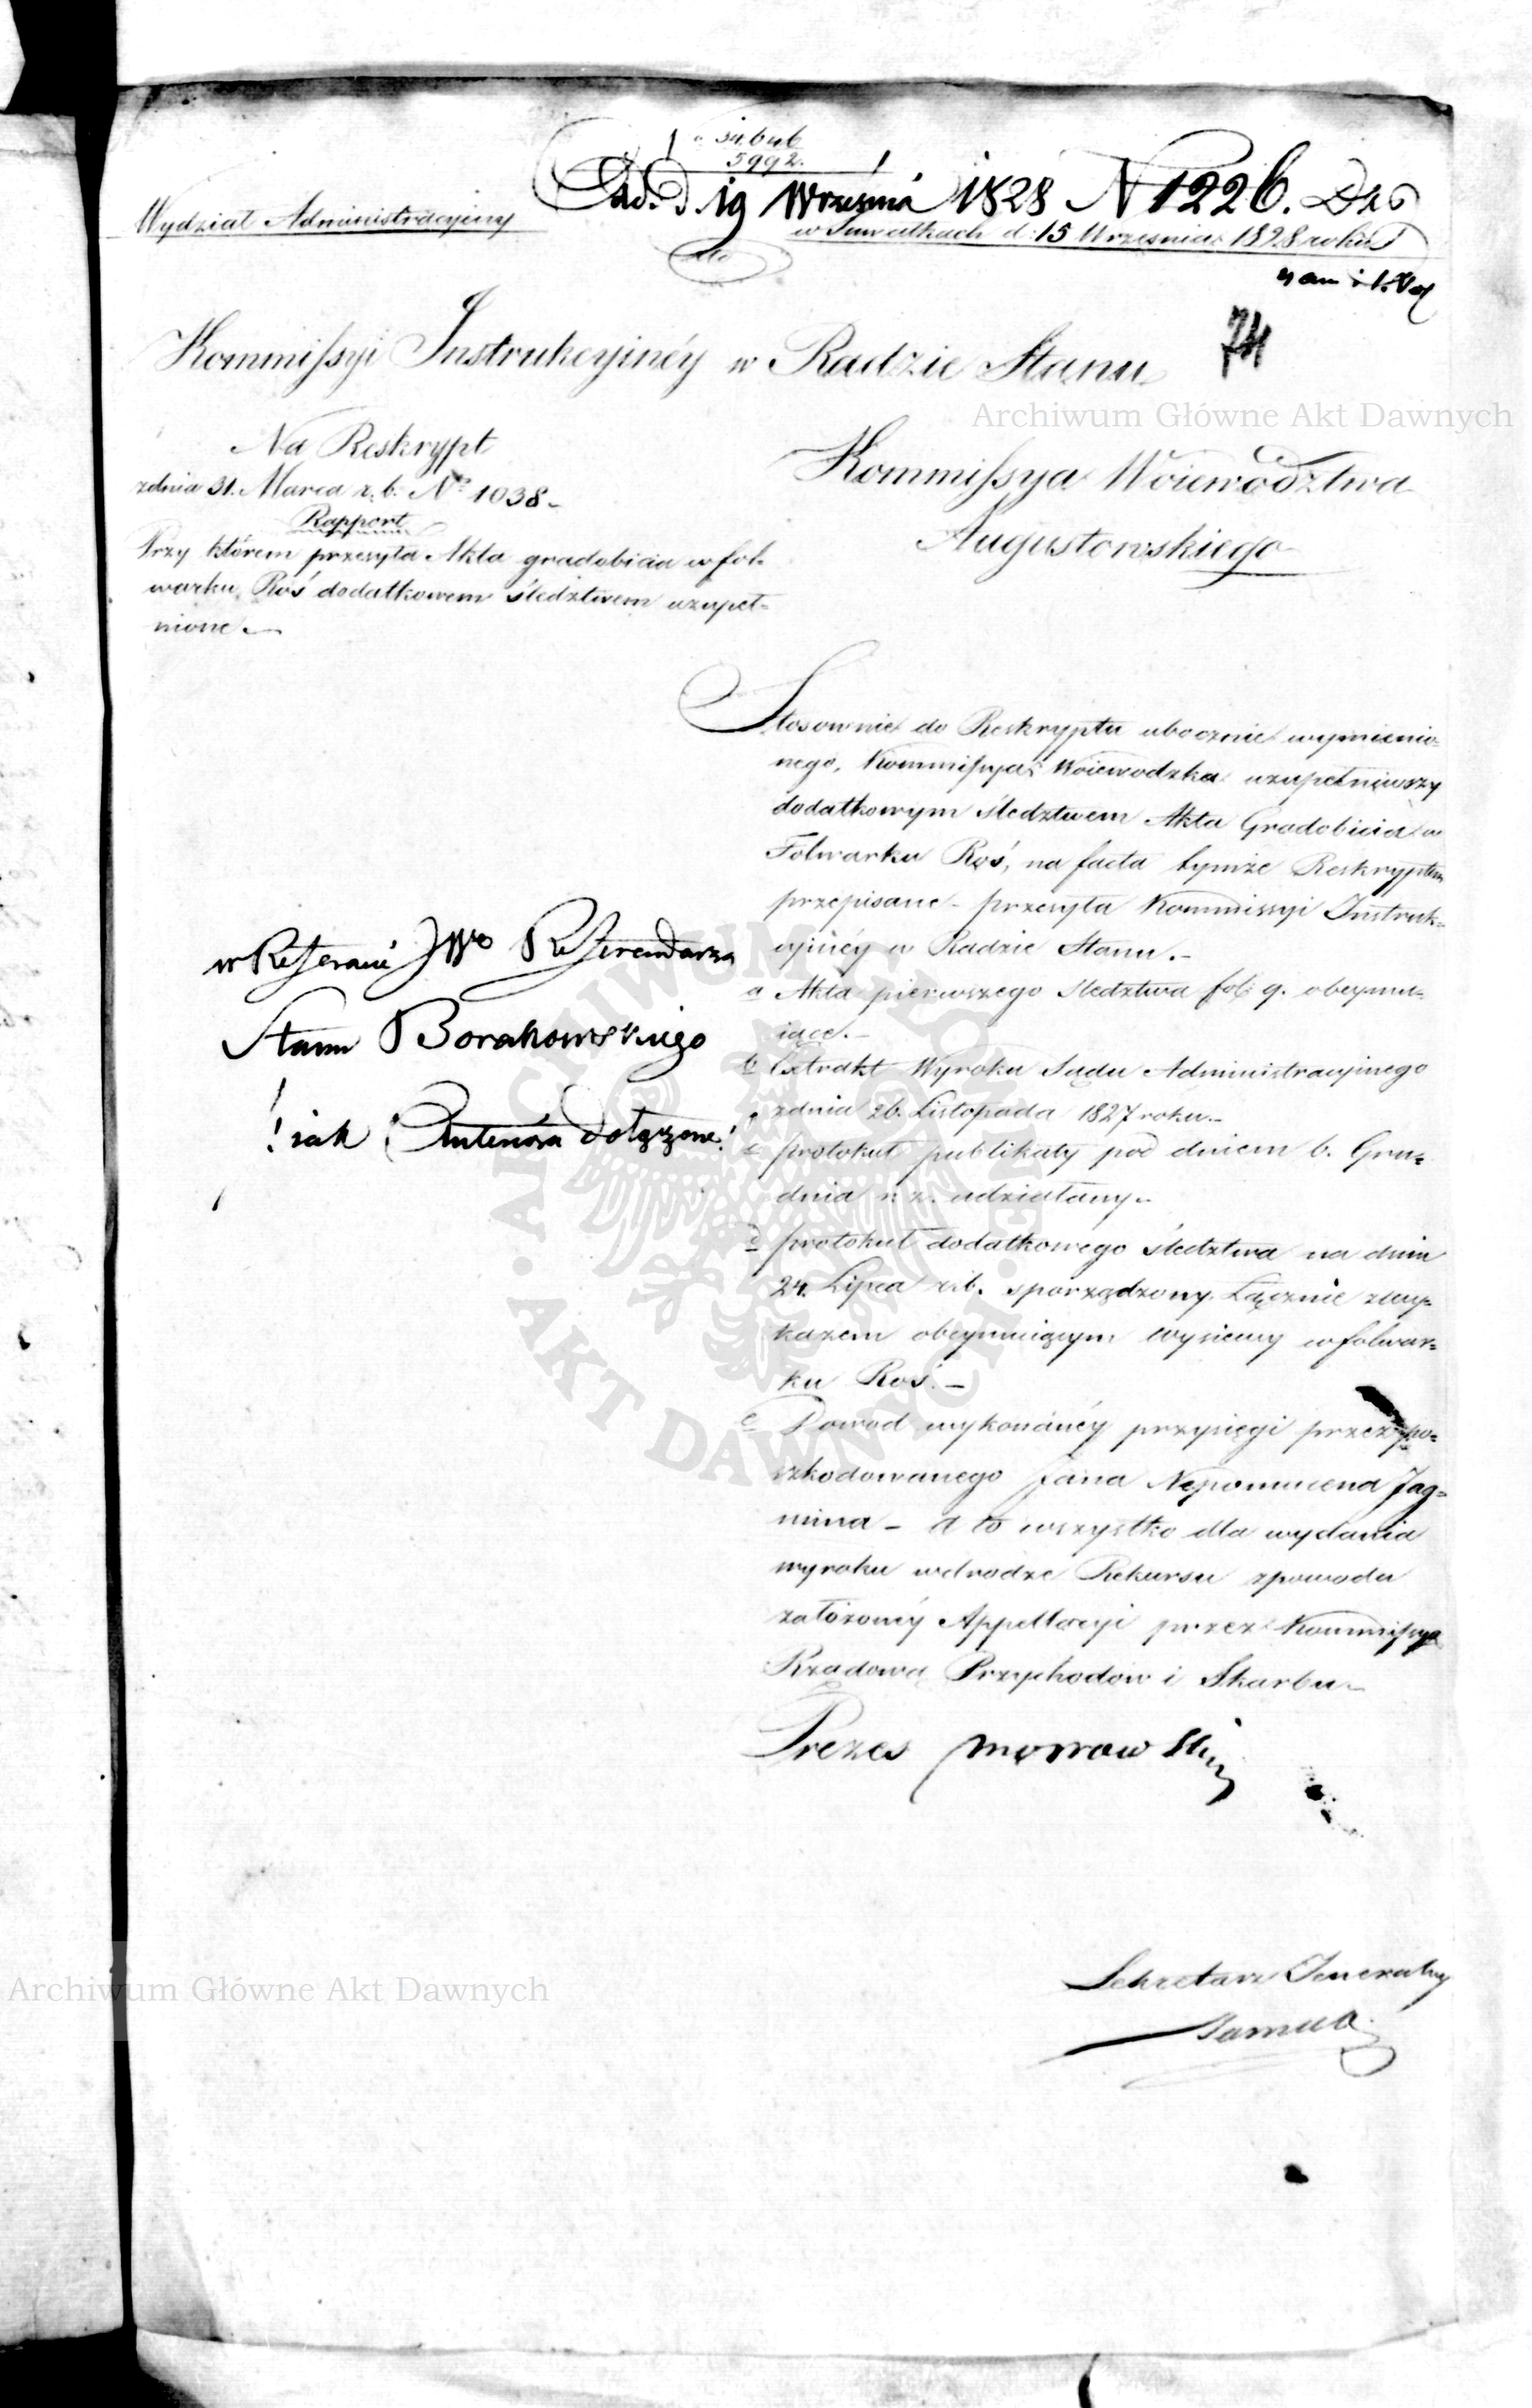 5992.
Wydział Administracyiny
d. 19 Września 1828 N 1226.
w Suwałkach d: 15 Września 1828 roku
74
Kommissyi Instrukcyinéy w Radzie Stanu
Archiwum Główne Akt Dawnych
Na Reskrypt
zdnia 31. Marca r. b. No 1038.
Rapport
Przy którem przesyła Akta gradobicia w fol-
warku Roś dodatkowem śledztwem uzupeł-
nione.
Kommissya Woiewództwa
Augustowskiego
Stosownie do Reskryptu ubocznie wymienio-
nego, Kommissya Woiewodzka uzupełniwszy
dodatkowym śledztwem Akta Gradobicia w
Folwarku Roś, na facta tymże Reskryptem
przepisane - przesyła Kommissyi Instruk-
cyinéy w Radzie Stanu. -
a Akta pierwszego śledztwa fol: 9. obeymu-
iące. -
b Extrakt Wyroku Sądu Administracyinego
zdnia 26. Listopada 1827 roku. -
c protokuł publikaty pod dniem 6. Gru-
dnia r. z. udziałany. -
d protokuł dodatkowego śledztwa na dniu
24. Lipca r. b. sporządzony Łącznie zwy-
kazem obeymuiącym wysiewy w folwar-
ku Roś. -
e Dowod wykonanéy przysięgi przez po-
szkodowanego Jana Nepomucena Jag-
mina - a to wszystko dla wydania
wyroku wdrodze Rekursu zpowodu
założonéy Appellacyi przez Kommissyą
Rządową Przychodów i Skarbu. -
w Referacie JWo Referendarza
Stanu Borakowskiego
Prezes
Sekretarz Jeneralny
Archiwum Główne Akt Dawnych
ARCHIWUM GŁÓWNE
AKT DAWNYCH